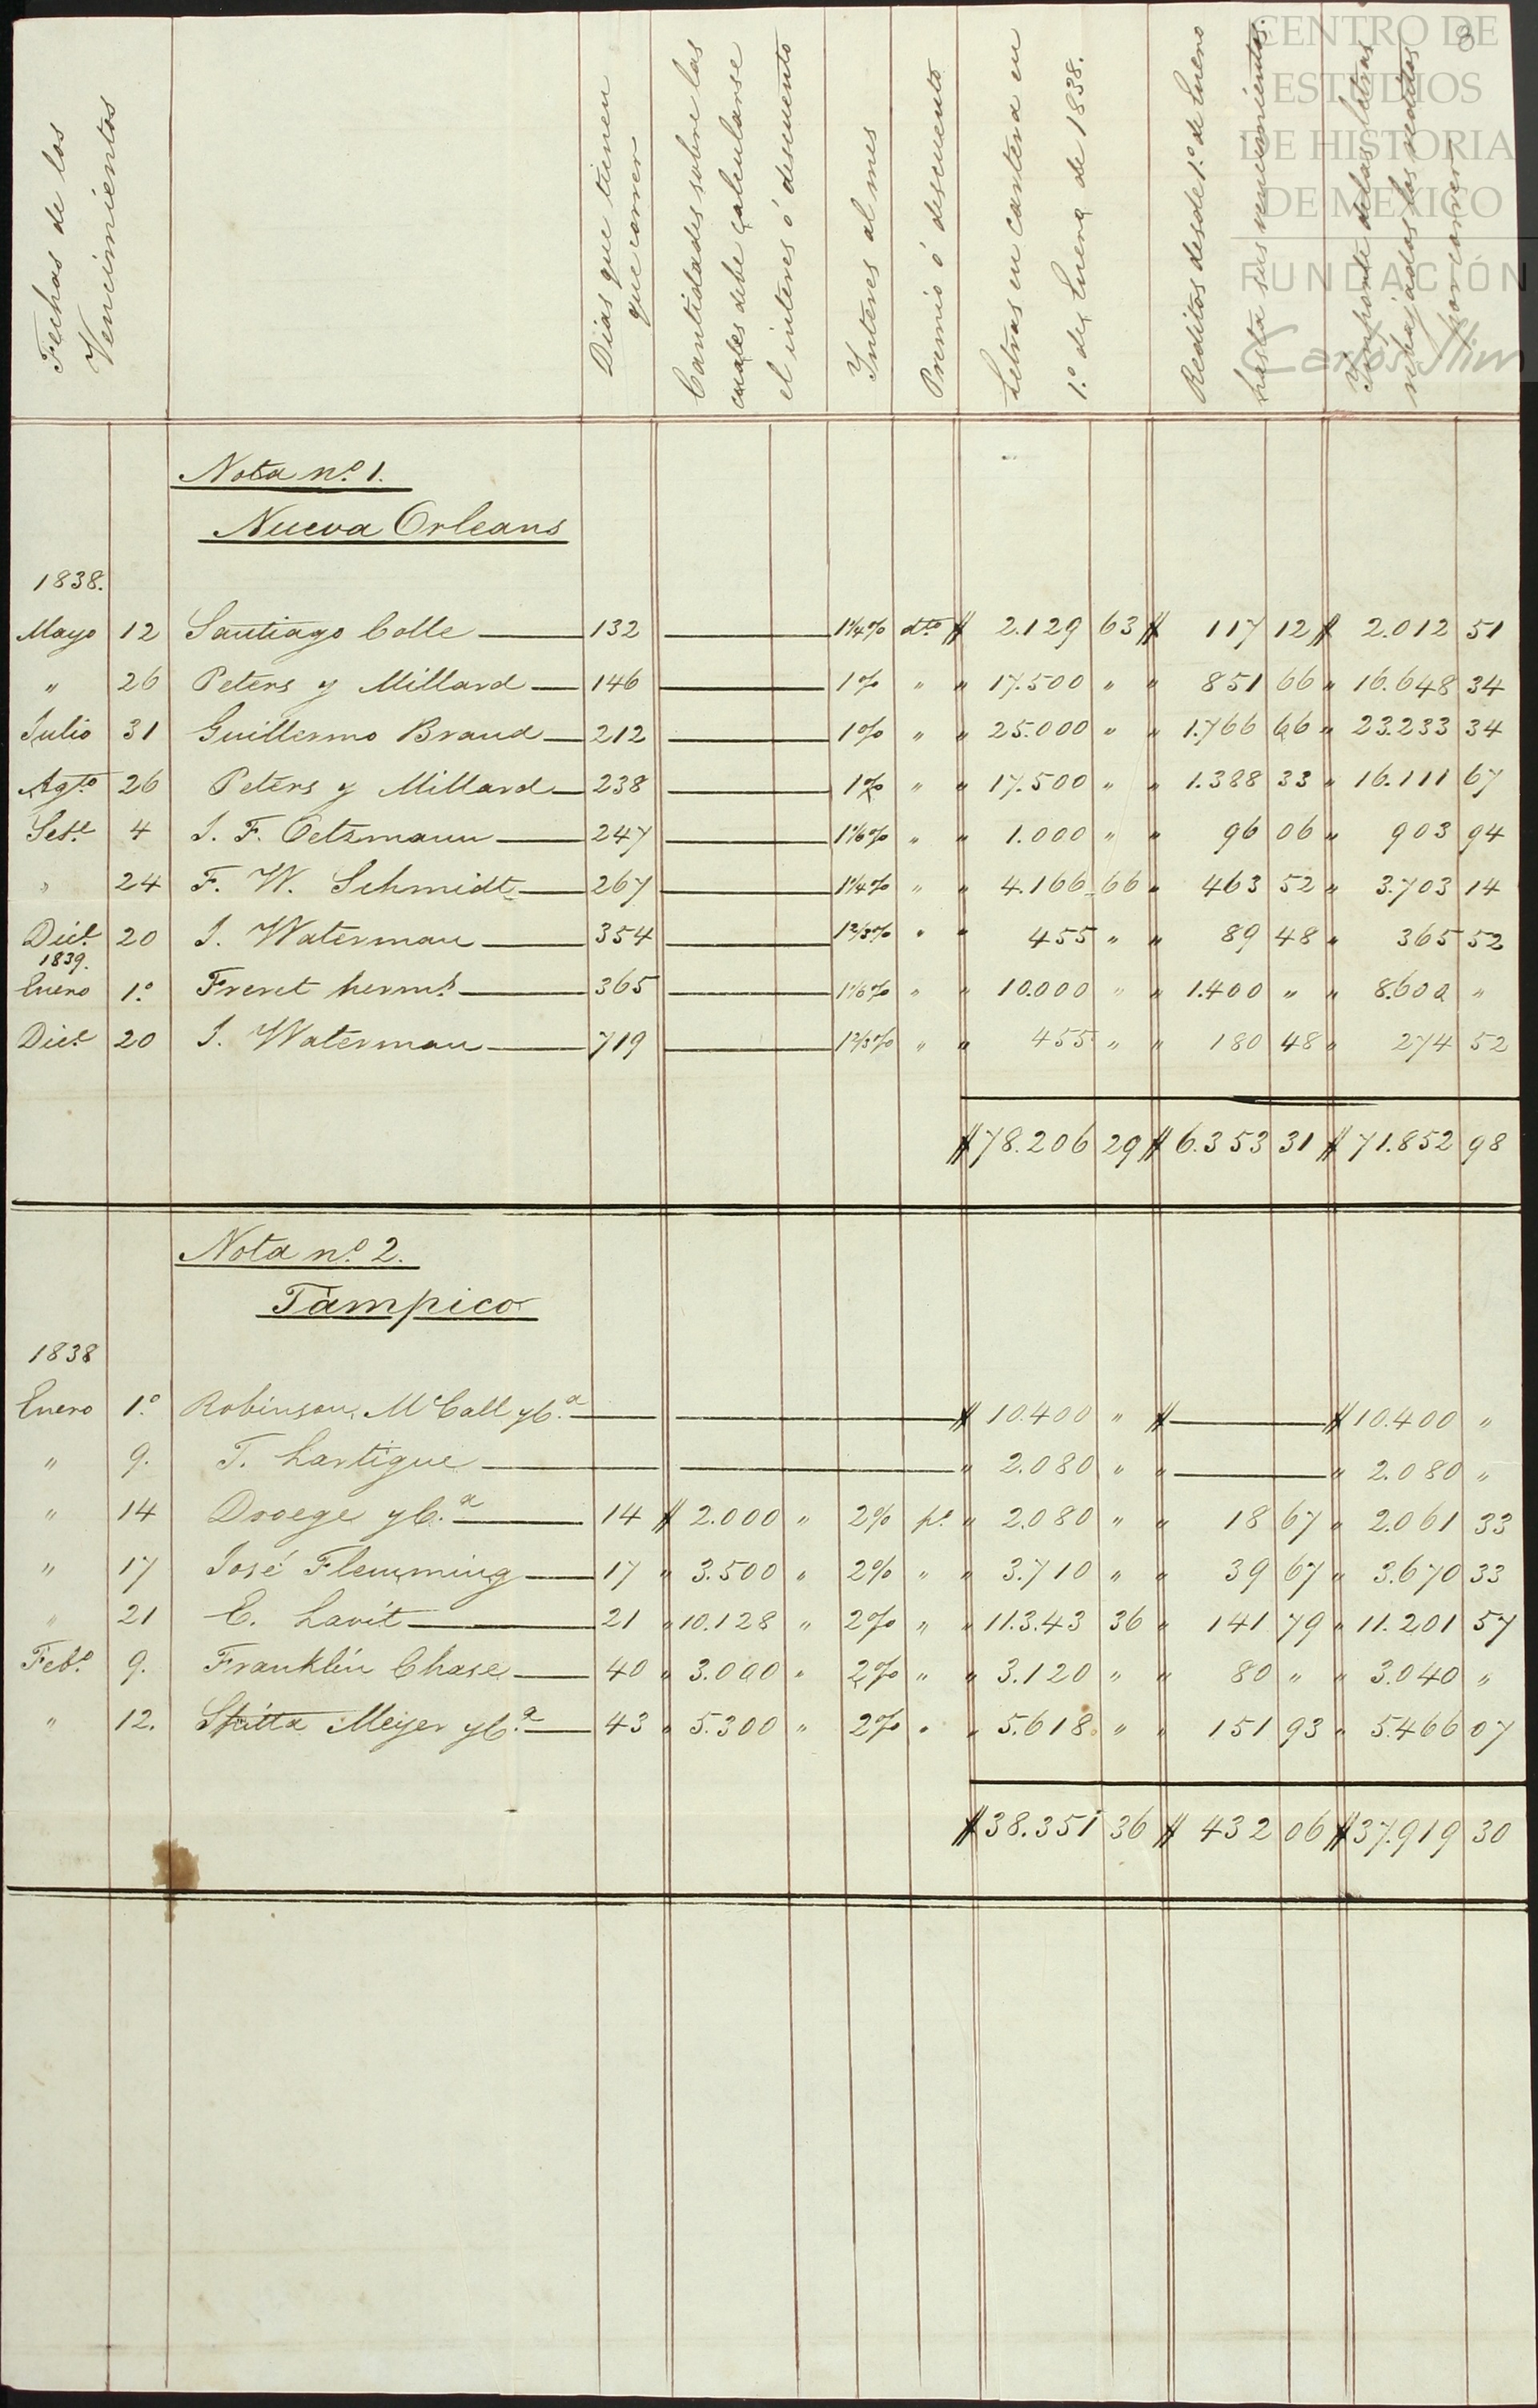 8
CENTRO DE
ESTUDIOS
DE HISTORIA
DE MÉXICO
FUNDACIÓN
Carlos Slim
Fechas de los
Vencimientos
Dias que tienen
que correr
Cantidades sobre las
cuales debe calcularse
el interes ó descuento
Ynteres al mes
Premio ó descuento
Letras en cartera en
1.º de Enero de 1838.
Reditos desde 1.º de Enero
hasta sus vencimientos.
Ymporte de las letras
rebajados los reditos
por correr
Nota nº. 1.
Nueva Orleans
1838.
Mayo 12 Santiago Colle 132 1¼% dto $ 2.129 63 $ 117 12 $ 2.012 51
" 26 Peters y Millard 146 1% " " 17.500 " " 851 66 " 16.648 34
Julio 31 Guillermo Brand 212 1% " " 25.000 " " 1.766 66 " 23.233 34
Agto 26 Peters y Millard 238 1% " " 17.500 " " 1.388 33 " 16.111 67
Sete 4 J. F. Oetzmann 247 1⅙% " " 1.000 " " 96 06 " 903 94
" 24 F. W. Schmidt 267 1¼% " " 4.166 66 " 463 52 " 3.703 14
Dice 20 J. Waterman 354 1⅔% " " 455 " " 89 48 " 365 52
1839.
Enero 1.º Freret herms 365 1⅙% " " 10.000 " " 1.400 " " 8.600 "
Dice 20 J. Waterman 719 1⅔% " " 455 " " 180 48 " 274 52
$ 78.206 29 $ 6.353 31 $ 71.852 98
Nota nº. 2.
Tampico
1838
Enero 1.º Robinson, McCall y C.a $ 10.400 " $ $ 10.400 "
" 9. T. Lartigue " 2.080 " " " 2.080 "
" 14 Droege y C.a 14 $ 2.000 " 2% po " 2.080 " " 18 67 " 2.061 33
" 17 José Flemming 17 " 3.500 " 2% " " 3.710 " " 39 67 " 3.670 33
" 21 C. Lavit 21 " 10.128 " 2% " " 11.3.43 36 " 141 79 " 11.201 57
Febo 9. Franklin Chase 40 " 3.000 " 2% " " 3.120 " " 80 " " 3.040 "
" 12. Spitta Meyer y C.a 43 " 5.300 " 2% " " 5.618 " " 151 93 " 5.466 07
$ 38.351 36 $ 432 06 $ 37.919 30